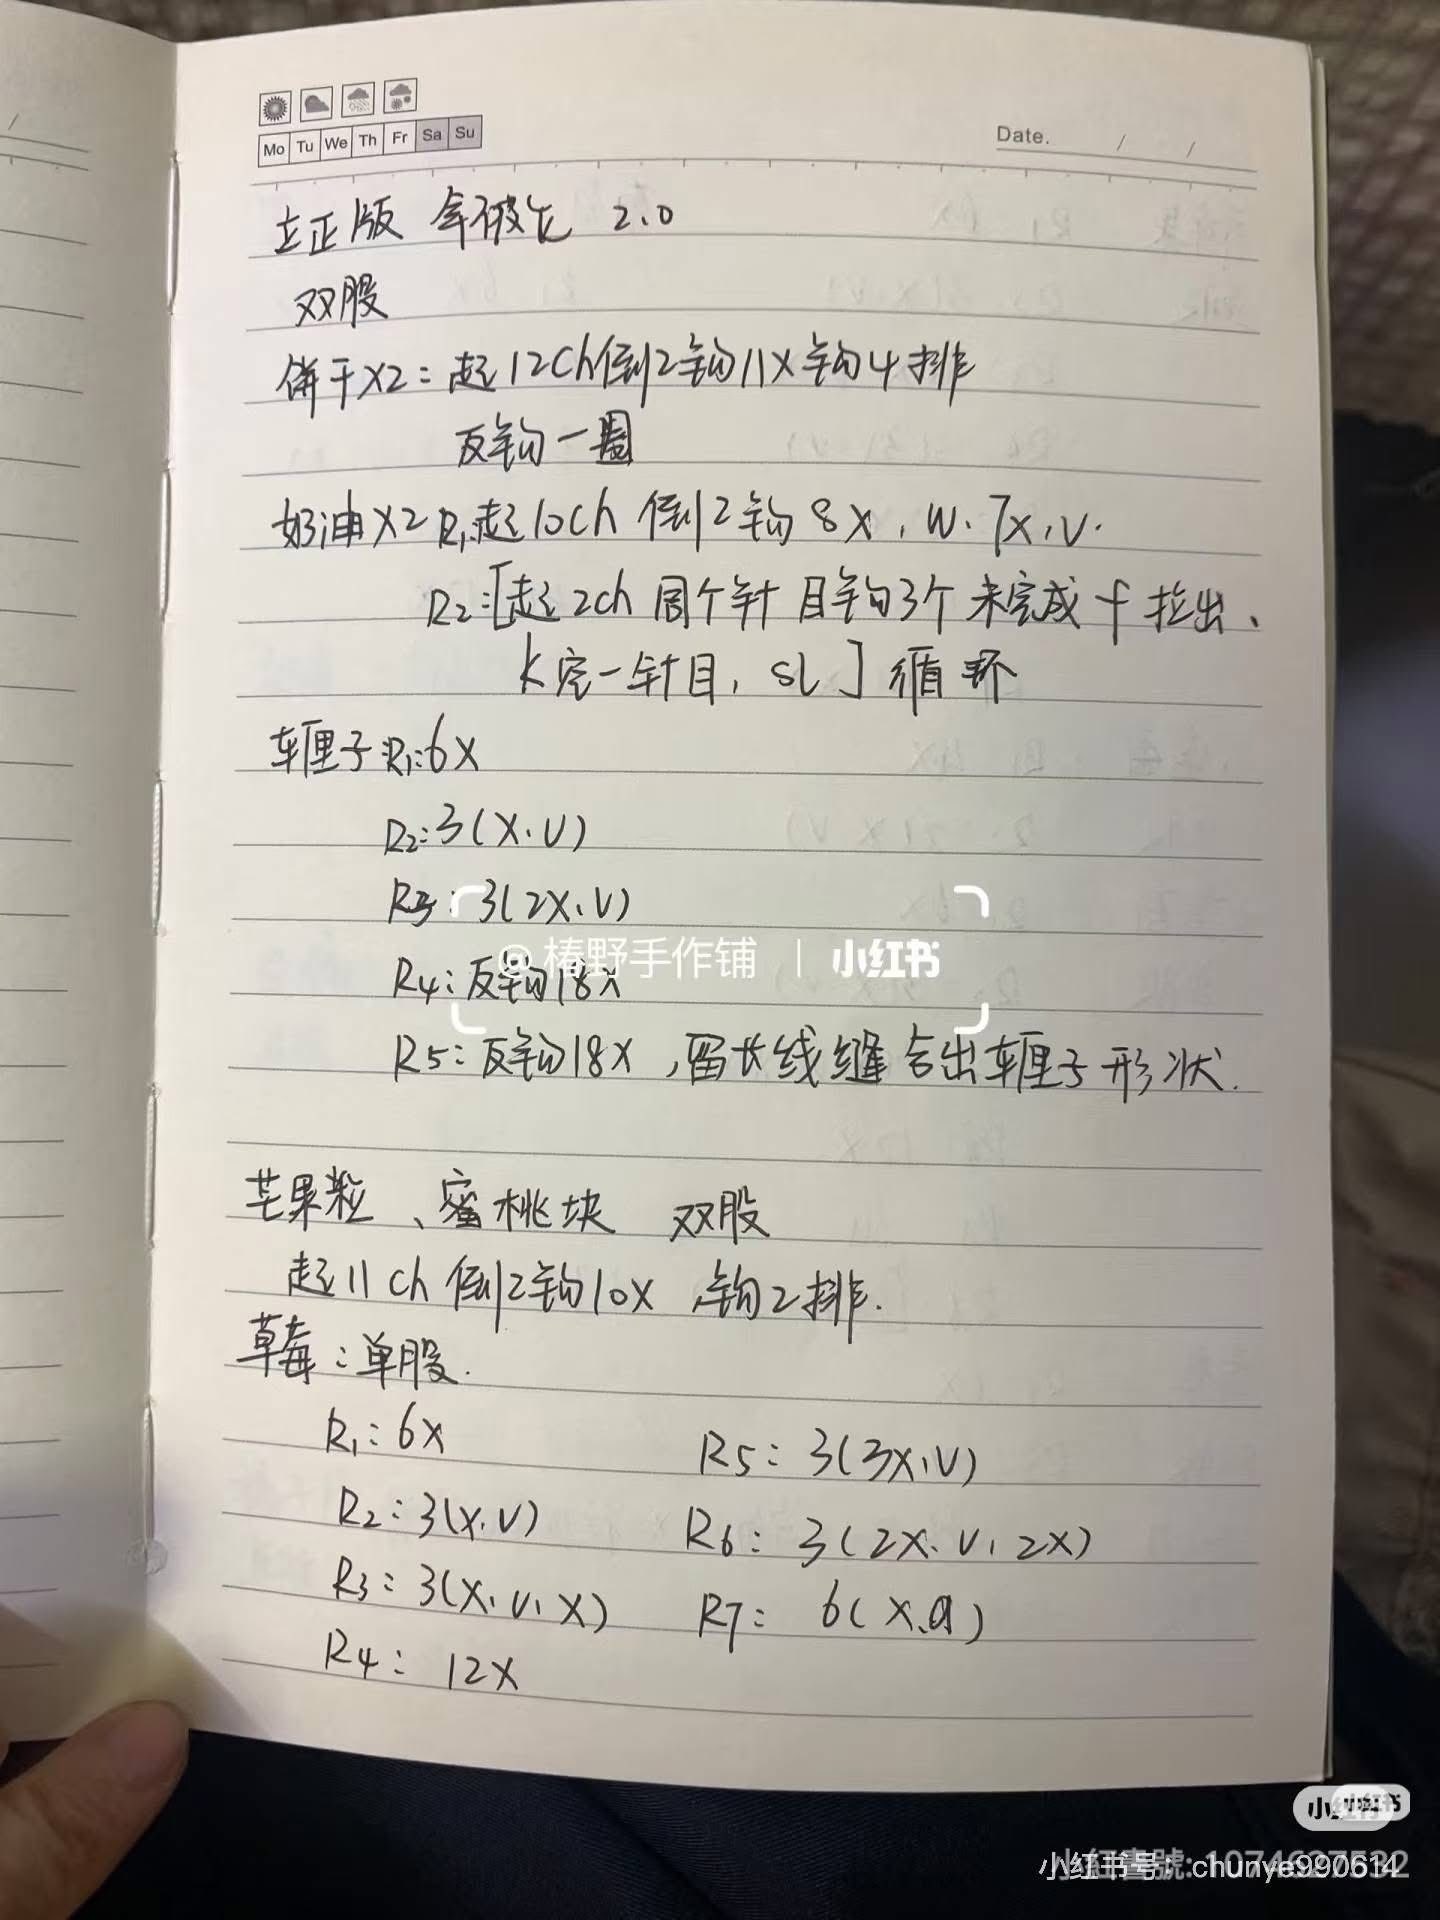 Mo Tu We Th Fr Sa Su
Date. / /
立正版 拿破仑 2.0
双股
饼干X2：起12ch倒2钩11X钩4排
反钩一圈
奶油X2 R1起10ch 倒2钩8X，W、7X，V.
R2：[起2ch 同个针目钩3个未完成F拉出、
K完一针目，SL]循环
车厘子：R1：6X
R2：3(X、V)
R3：3(2X、V)
@椿野手作铺 | 小红书
R4：反钩18X
R5：反钩18X，留长线缝合出车厘子形状.
芒果粒、蜜桃块 双股
起11ch倒2钩10X，钩2排.
草莓：单股.
R1：6X
R2：3(X、V)
R3：3(X、V、X)
R4：12X
R5：3(3X、V)
R6：3(2X、V、2X)
R7：6(X、A)
小红书
小红書號: 1074627532
小红书号: chunye990614